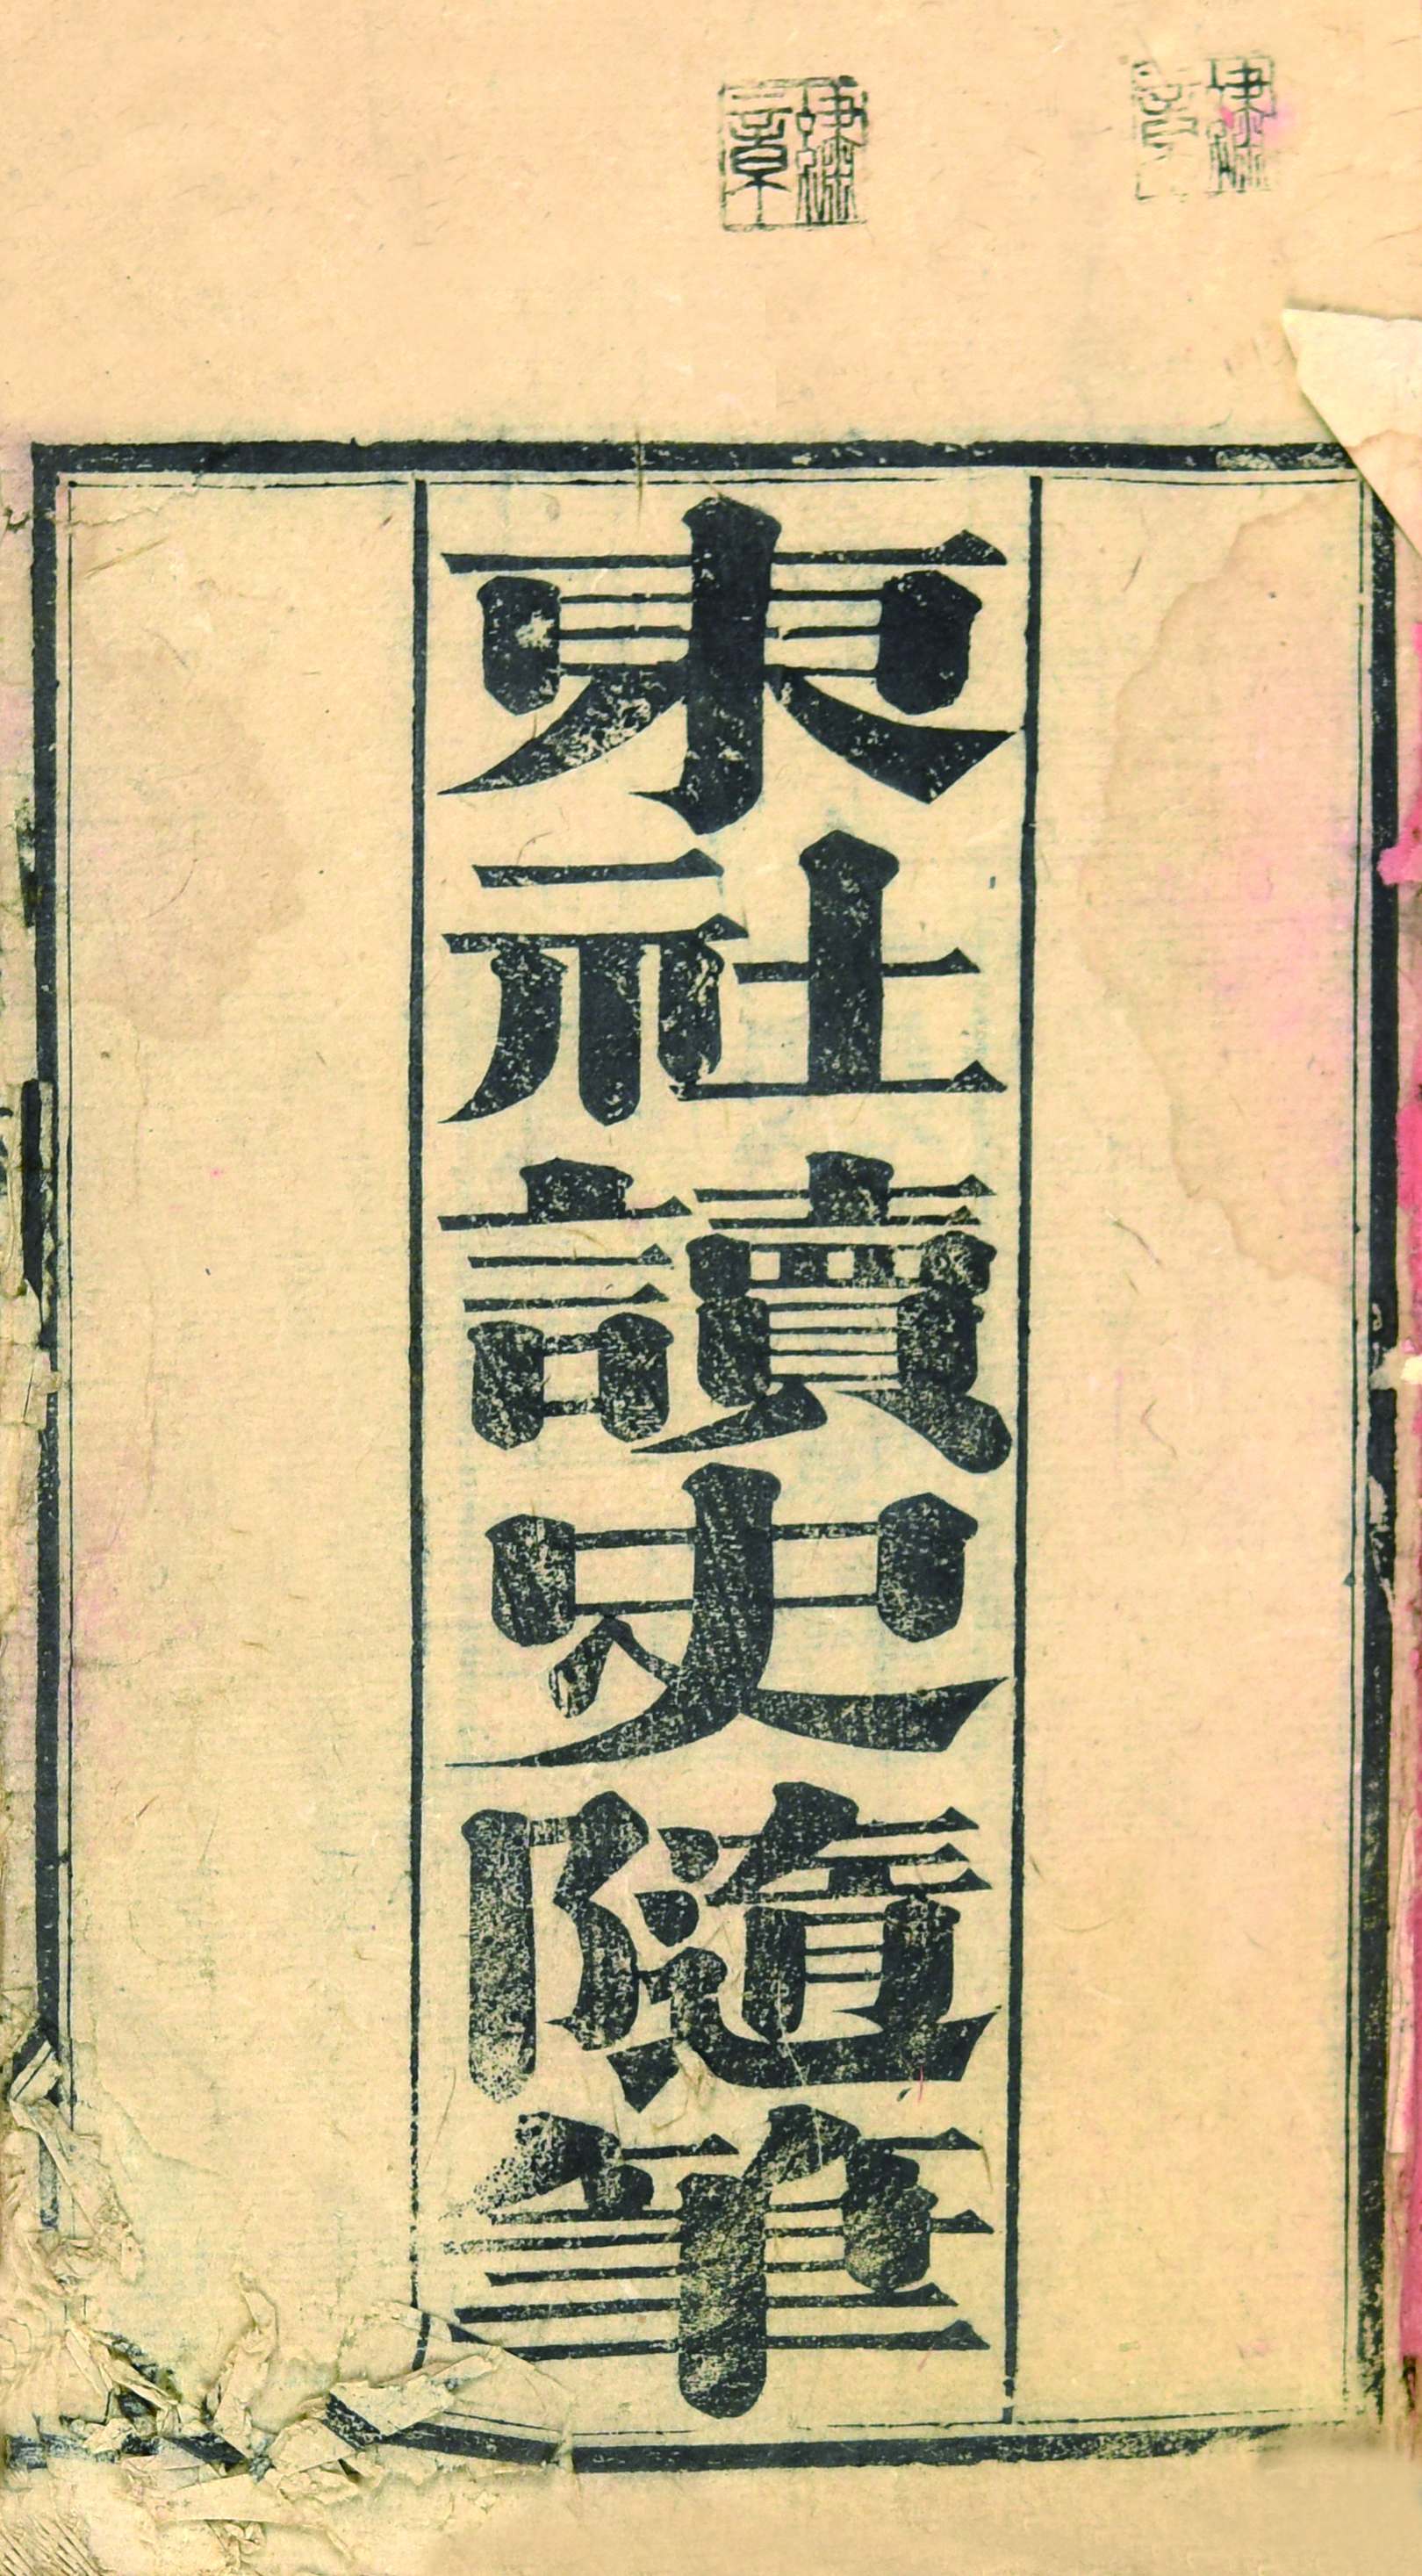 東社讀史隨筆